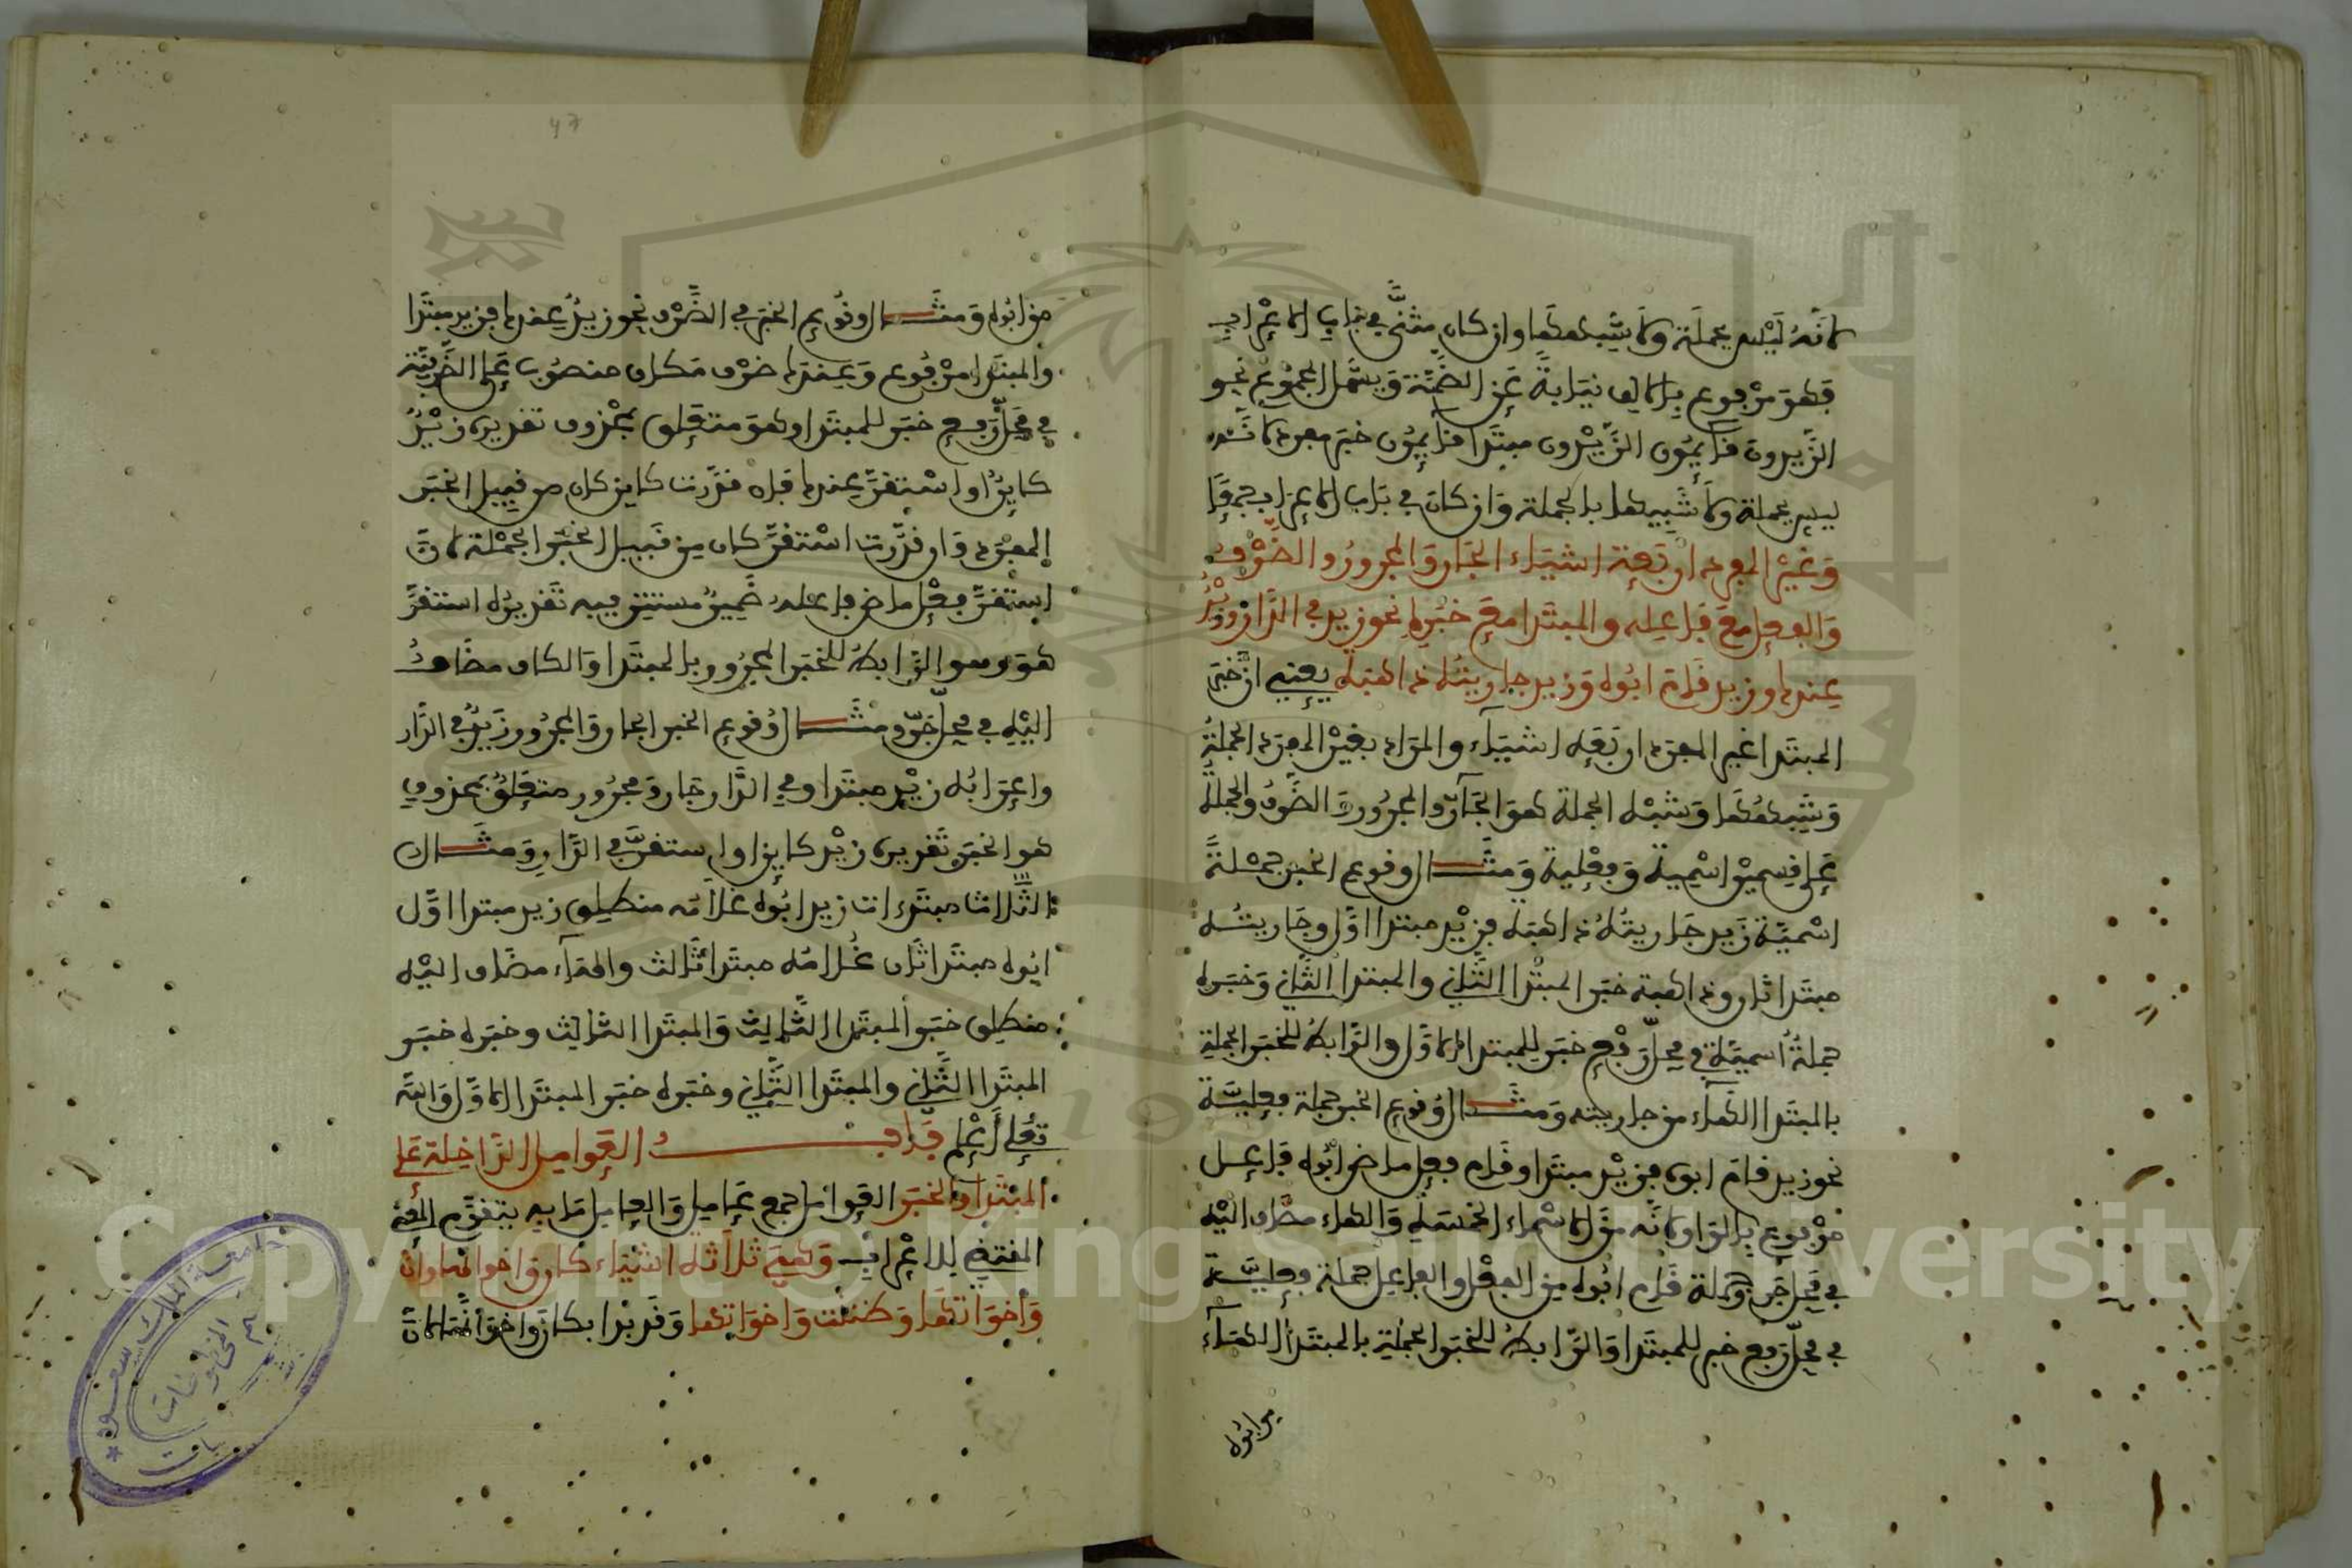 لانه ليس بجملة ولا شبهها وان كان مثنى في باب الاعراب
فهو مرفوع بالالف نيابة عن الضمة ويشمل المجموع نحو
الزيدون قائمون الزيدون مبتدا قائمون خبر مفرد لانه
ليس بجملة ولا شبيها بالجملة وان كان في باب الاعراب جمعا
وغير المفرد اربعة اشياء الجار والمجرور والظرف
والفعل مع فاعله والمبتدا مع خبره نحو زيد في الدار وزيد
عندك وزيد قام ابوه وزيد جاريته ذاهبة يعني ان خبر
المبتدا غير المفرد اربعة اشياء والمراد بغير المفرد الجملة
وشبهها وشبه الجملة هو الجار والمجرور والظرف والجملة
على قسمين اسمية وفعلية ومثال وقوع الخبر جملة
اسمية زيد جاريته ذاهبة فزيد مبتدا اول وجاريته
مبتدا ثان وذاهبة خبر المبتدا الثاني والمبتدا الثاني وخبره
جملة اسمية في محل رفع خبر للمبتدا الاول والرابط للخبر الجملة
بالمبتدا الهاء من جاريته ومثال وقوع الخبر جملة فعلية
نحو زيد قام ابوه فزيد مبتدا وقام فعل ماض ابوه فاعل
مرفوع بالواو لانه من الاسماء الخمسة والهاء مضاف اليه
في محل جر وجملة قام ابوه من الفعل والفاعل جملة فعلية
في محل رفع خبر للمبتدا والرابط للخبر الجملة بالمبتدا الهاء
من ابوه
47
من ابوه ومثال وقوع الخبر في الظرف نحو زيد عندك فزيد مبتدا
والمبتدا مرفوع وعندك ظرف مكان منصوب على الظرفية
في محل رفع خبر للمبتدا وهو متعلق بمحذوف تقديره زيد
كاين او استقر عندك فان قدرت كاين كان من قبيل الخبر
المفرد وان قدرت استقر كان من قبيل الخبر الجملة لان
استقر فعل ماض فاعله ضمير مستتر فيه تقديره استقر
هو وهو الرابط للخبر المجرور بالمبتدا والكاف مضاف
اليه في محل جر ومثال وقوع الخبر الجار والمجرور زيد في الدار
واعرابه زيد مبتدا وفي الدار جار ومجرور متعلق بمحذوف
هو الخبر تقديره زيد كاين او استقر في الدار ومثال
الثلاث مبتدءات زيد ابوه غلامه منطلق زيد مبتدا اول
ابوه مبتدا ثان غلامه مبتدا ثالث والهاء مضاف اليه
منطلق خبر المبتدا الثالث والمبتدا الثالث وخبره خبر
المبتدا الثاني والمبتدا الثاني وخبره خبر المبتدا الاول والله
تعلى اعلم باب العوامل الداخلة على
المبتدا والخبر العوامل جمع عامل والعامل ما به يتقوم المعنى
المقتضي للاعراب وهي ثلاثة اشياء كان واخواتها وان
واخواتها وظننت واخواتها وقد بدا بكان واخواتها لان
جامعة الملك سعود
قسم المخطوطات
Copyright © King Saud University